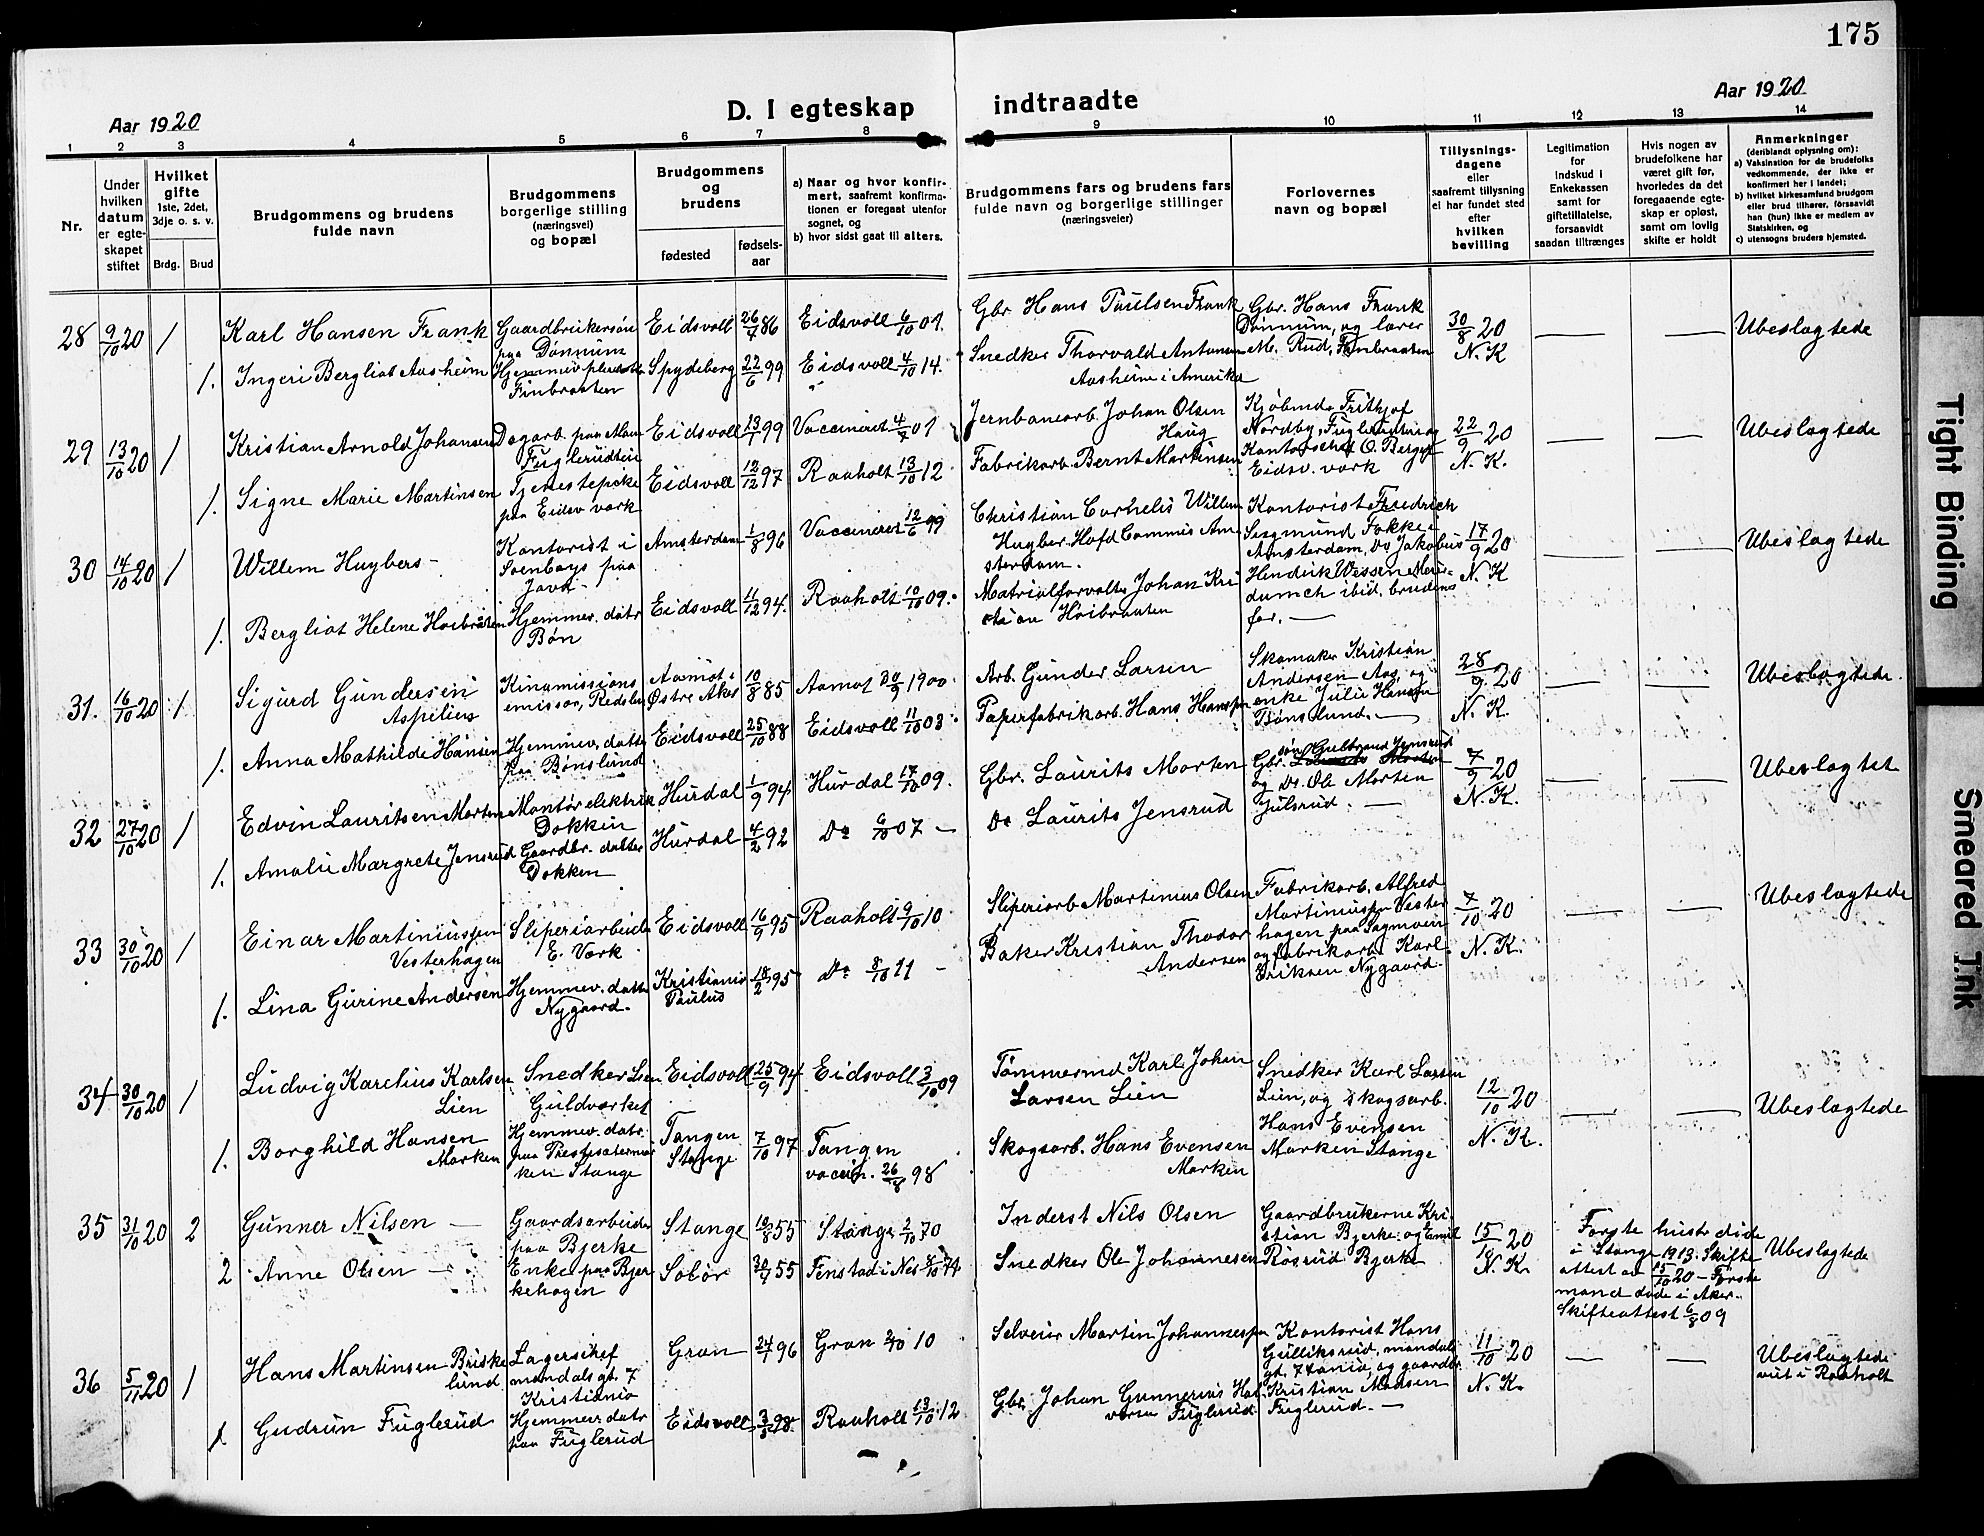 175
Aar 1920
D. I egteskap
indtraadte
Aar 1920
1 2 3 4 5 6 7 8 9 10 11 12 13 14
Nr.
Under hvilken datum er egteskapet stiftet
Hvilket gifte 1ste, 2det, 3dje o. s. v.
Brdg. Brud
Brudgommens og brudens fulde navn
Brudgommens borgerlige stilling (næringsvei) og bopæl
Brudgommens og brudens
fødested
fødselsaar
a) Naar og hvor konfirmert, saafremt konfirmationen er foregaat utenfor sognet, og
b) hvor sidst gaat til alters.
Brudgommens fars og brudens fars fulde navn og borgerlige stillinger (næringsveier)
Forlovernes navn og bopæl
Tillysningsdagene eller saafremt tillysning ei har fundet sted efter hvilken bevilling
Legitimation for indskud i Enkekassen samt for giftetillatelse, forsaavidt saadan tiltrænges
Hvis nogen av brudefolkene har været gift før, hvorledes da det foregaaende egteskap er opløst, samt om lovlig skifte er holdt
Anmerkninger (deriblandt oplysning om):
a) Vaksination for de brudefolks vedkommende, der ikke er konfirmert her i landet;
b) hvilket kirkesamfund brudgom eller brud tilhører, forsaavidt han (hun) ikke er medlem av Statskirken, og
c) utensogns bruders hjemsted.
28 9/10 20 1 Karl Hansen Frank Gaardbrukersøn paa Dønnum Eidsvoll 26/4 86 Eidsvoll 6/10 01. Gbr. Hans Paulsen Frank Gbr. Hans Frank Dønnum, og lærer M. Rud, Finbraaten 30/8 20 N. K — — Ubeslagtede
1. Ingeri Bergliot Aasheim Hjemmev. pleiedatter Finbraaten Spydeberg 22/6 99 Eidsvoll 4/10 14. Snedker Thorvald Antonsen Aasheim i Amerika
29 13/10 20 1 Kristian Arnold Johansen Dagarb. paa Moen Fuglerudteie Eidsvoll 13/1 99 Vaccineret 4/7 01 Jernbanearb. Johan Olsen Haug Kjøbmd. Frithjof Nordby, Fuglerudteie og Kontorchef O. Berger Eidsv. værk 22/9 20 N. K. — — Ubeslagtede
1. Signe Marie Martinsen Tjenestepike paa Eidsv værk Eidsvoll 12/12 97 Raaholt 13/10 12 Fabrikarb. Bernt Martinsen
30 14/10 20 1 Willem Huybers — Kontorist i Soenboys paa Java — Amsterdam 1/8 96 Vaccineret 12/6 99 Christian Cornelis Willem Huyber. Hofd Commis Amsterdam. Kontorist Friedrich Sigmund Fokke i Amsterdam, Do Jakobus Hendrik Wessen ibid, brudens far. — 17/9 20 N. K — — Ubeslagtede
1. Bergliot Helene Høibraaten Hjemmev. datr Bøn Eidsvoll 11/12 94. Raaholt 10/10 09. Matrialforvalter Johan Kristian Høibraaten
31. 16/10 20 1 Sigurd Gundersen Aspelien Kinamissions emissær, Redalen Aamot i Østre Aker 10/8 85 Aamot 30/9 1900 Arb. Gunder Larsen Skomaker Kristian Andersen Aas, og enke Julie Hansen Bønslund. — 28/9 20 N. K. — — Ubeslagtede.
1. Anna Mathilde Hansen Hjemmev. datter paa Bønslund Eidsvoll 25/10 88 Eidsvoll 11/10 03 Papirfabrikarb. Hans Hanssen
32 27/10 20 1 Edvin Lauritsen Morten Montør elektrik Dokken Hurdal 1/9 94 Hurdal 17/10 09. Gbr. Laurits Morten Gbr. søn Gulbrand Jensrud og Do. Ole Morten Julsrud. — 7/9 20 N. K. — — Ubeslagtet
1. Amalie Margrete Jensrud Gaardbr. datter Dokken Hurdal 4/2 92 Do 6/10 07 — Do Laurits Jensrud
33 30/10 20 1 Einar Martiniussen Vesterhagen Sliperiarbeider E. Værk Eidsvoll 16/9 95 Raaholt 9/10 10 Sliperiarb Martinius Olsen Fabrikarb. Alfred Martiniussen Vesterhagen paa Sagmoen og fabrikarb. Karl Eriksen Nygaard. 7/10 20 N. K. — — Ubeslagtede
1. Lina Gurine Andersen Hjemmev. datter Nygaard. Kristiania Paulus 18/2 95 Do 8/10 11 — Baker Kristian Thodor Andersen
34 30/10 20 1 Ludvig Karelius Karlsen Lien Snedker Lien Guldværket Eidsvoll 25/9 94 Eidsvoll 3/10 09 Tømmermd Karl Johan Larsen Lien Snedker Karl Larsen Lien, og skogsarb. Hans Evensen Marken Stange 12/10 20 N. K. — — Ubeslagtede
1. Borghild Hansen Marken Hjemmev. datr. paa Prestesætermarken Stange Tangen Stange 7/10 97 Tangen vaccin. 26/8 98 Skogsarb. Hans Evensen Marken
35 31/10 20 2 Gunner Nilsen — Gaardsarbeider paa Bjerke Stange 10/8 55 Stange 2/10 70 Inderst Nils Olsen Gaardbrukerne Kristian Bjerke og Emil Røsrud Bjerke 15/10 20 N. K. Første hustr døde i Stange 1913. Skifteattest av 15/10 20 — Første mand døde i Aker. Skifteattest 6/8 09 Ubeslagtede
2 Anne Olsen — Enke paa Bjerkehagen Solør 30/4 55 Fenstad i Nes Snedker Ole Johannesen
36 5/11 20 1 Hans Martinsen Briskelund Lagersjef Mandalsgt. 7 Kristiania Gran 24/1 96 Gran 2/10 10 Selveier Martin Johannessen Kontorist Hans Gulliksrud, Mandals gt. 7 Xania, og gaardbr. Kristian Madsen Fuglerud. — 11/10 20 N. K. — — Ubeslagtede viet i Raaholt
1 Gudrun Fuglerud Hjemmev. datr paa Fuglerud Eidsvoll 3/5 98. Raaholt 13/10 12 Gbr. Johan Gunnerius Halvorsen Fuglerud
Tight Binding
Smeared Ink